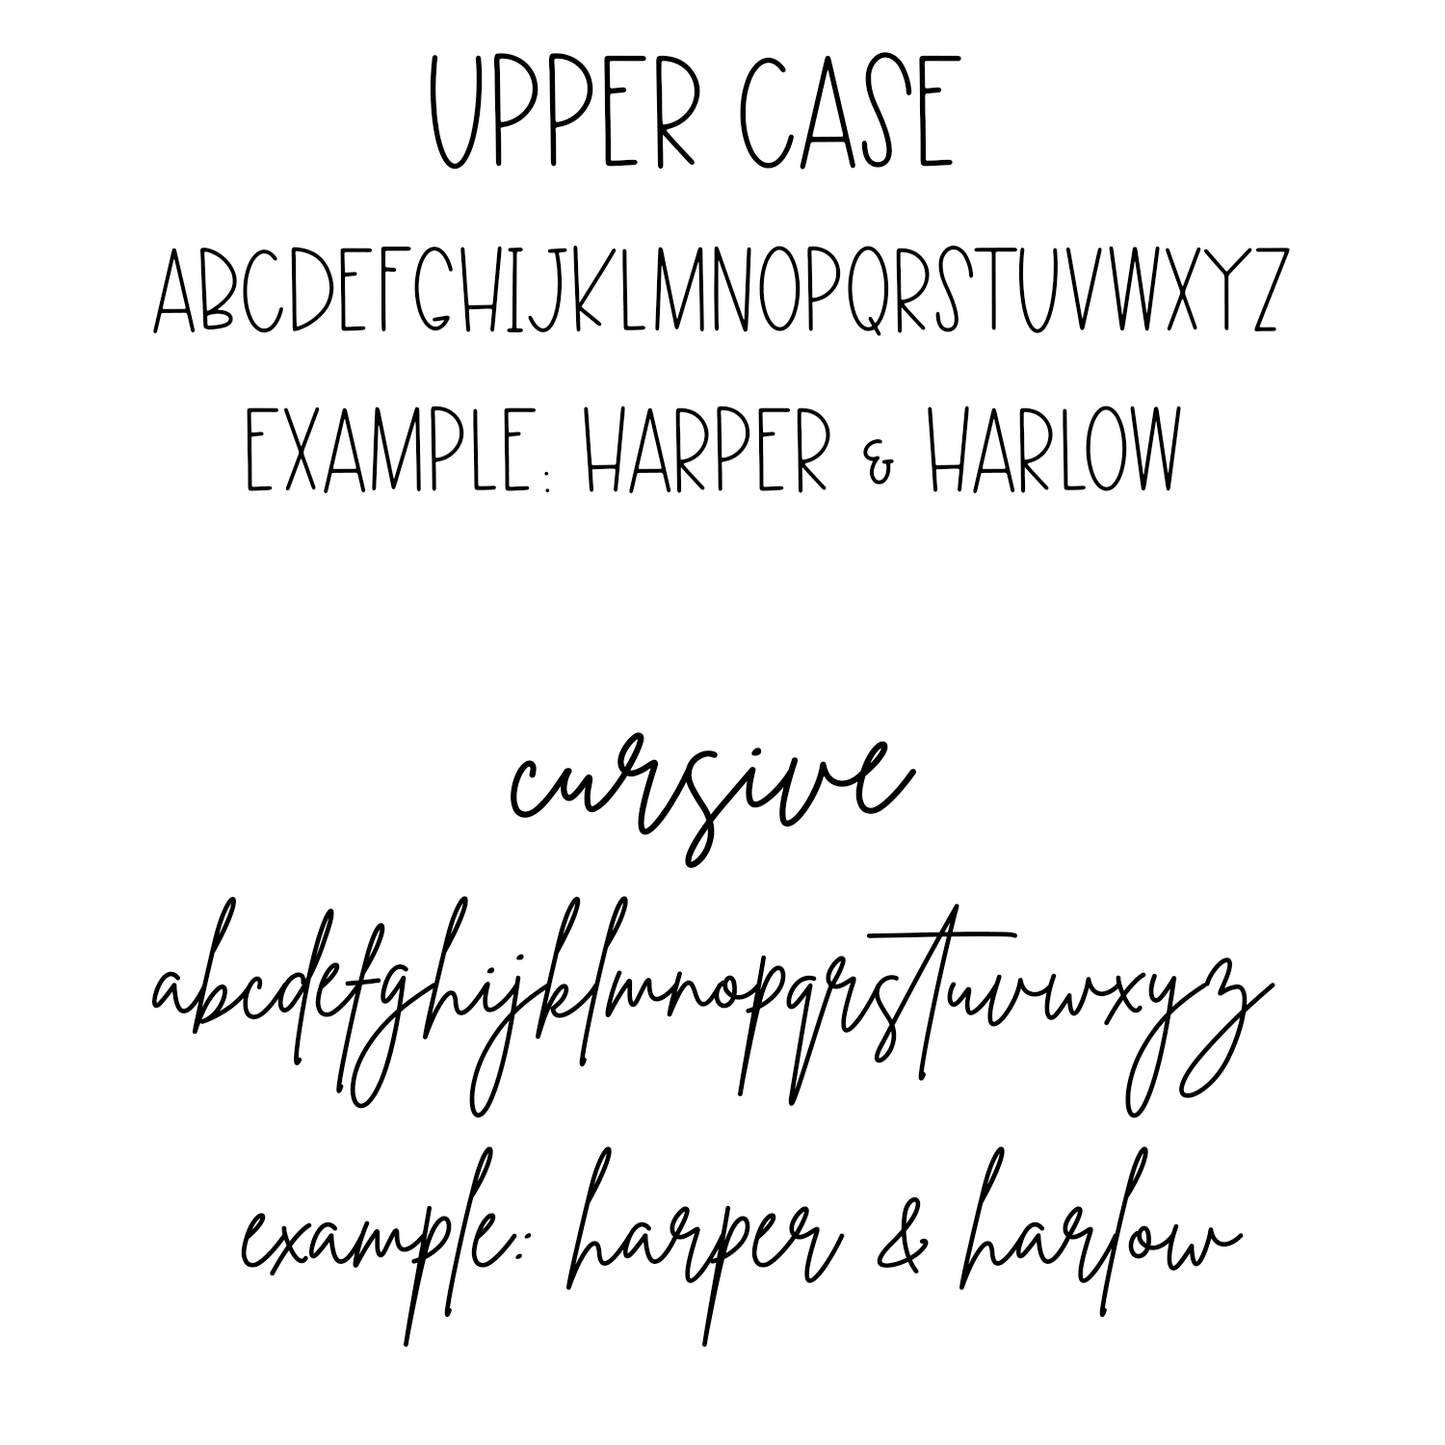 UPPER CASE
ABCDEFGHIJKLMNOPQRSTUVWXYZ
EXAMPLE: HARPER & HARLOW
cursive
abcdefghijklmnopqrstuvwxyz
example: harper & harlow